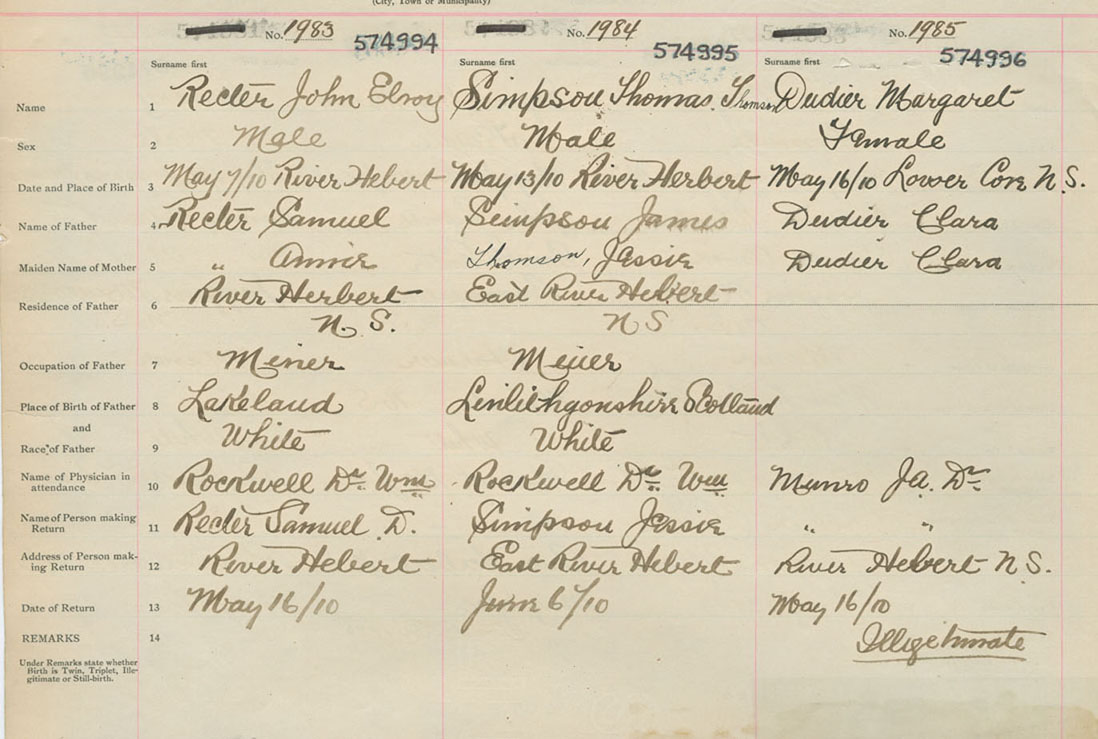 (City, Town or Municipality)
No. 1983 No. 1984 No. 1985
574994 574995 574996
Surname first Surname first Surname first
Name 1 Recter John Elroy Simpson Thomas Thomson Dudier Margaret
Sex 2 Male Male Female
Date and Place of Birth 3 May 7/10 River Hebert May 13/10 River Herbert May 16/10 Lower Cove N.S.
Name of Father 4 Recter Samuel Simpson James Dudier Clara
Maiden Name of Mother 5 " Annie Thomson, Jessie Dudier Clara
Residence of Father 6 River Herbert East River Hebert
N.S. N S
Occupation of Father 7 Miner Miner
Place of Birth of Father 8 Lakeland Linlithgonshire Scotland
and
Race of Father 9 White White
Name of Physician in
attendance 10 Rockwell Dr. Wm Rockwell Dr. Wm Munro Ja. Dr.
Name of Person making
Return 11 Recter Samuel D. Simpson Jessie " "
Address of Person mak-
ing Return 12 River Hebert East River Hebert River Hebert N.S.
Date of Return 13 May 16/10 June 6/10 May 16/10
REMARKS 14 Illigetimate
Under Remarks state whether
Birth is Twin, Triplet, Ille-
gitimate or Still-birth.